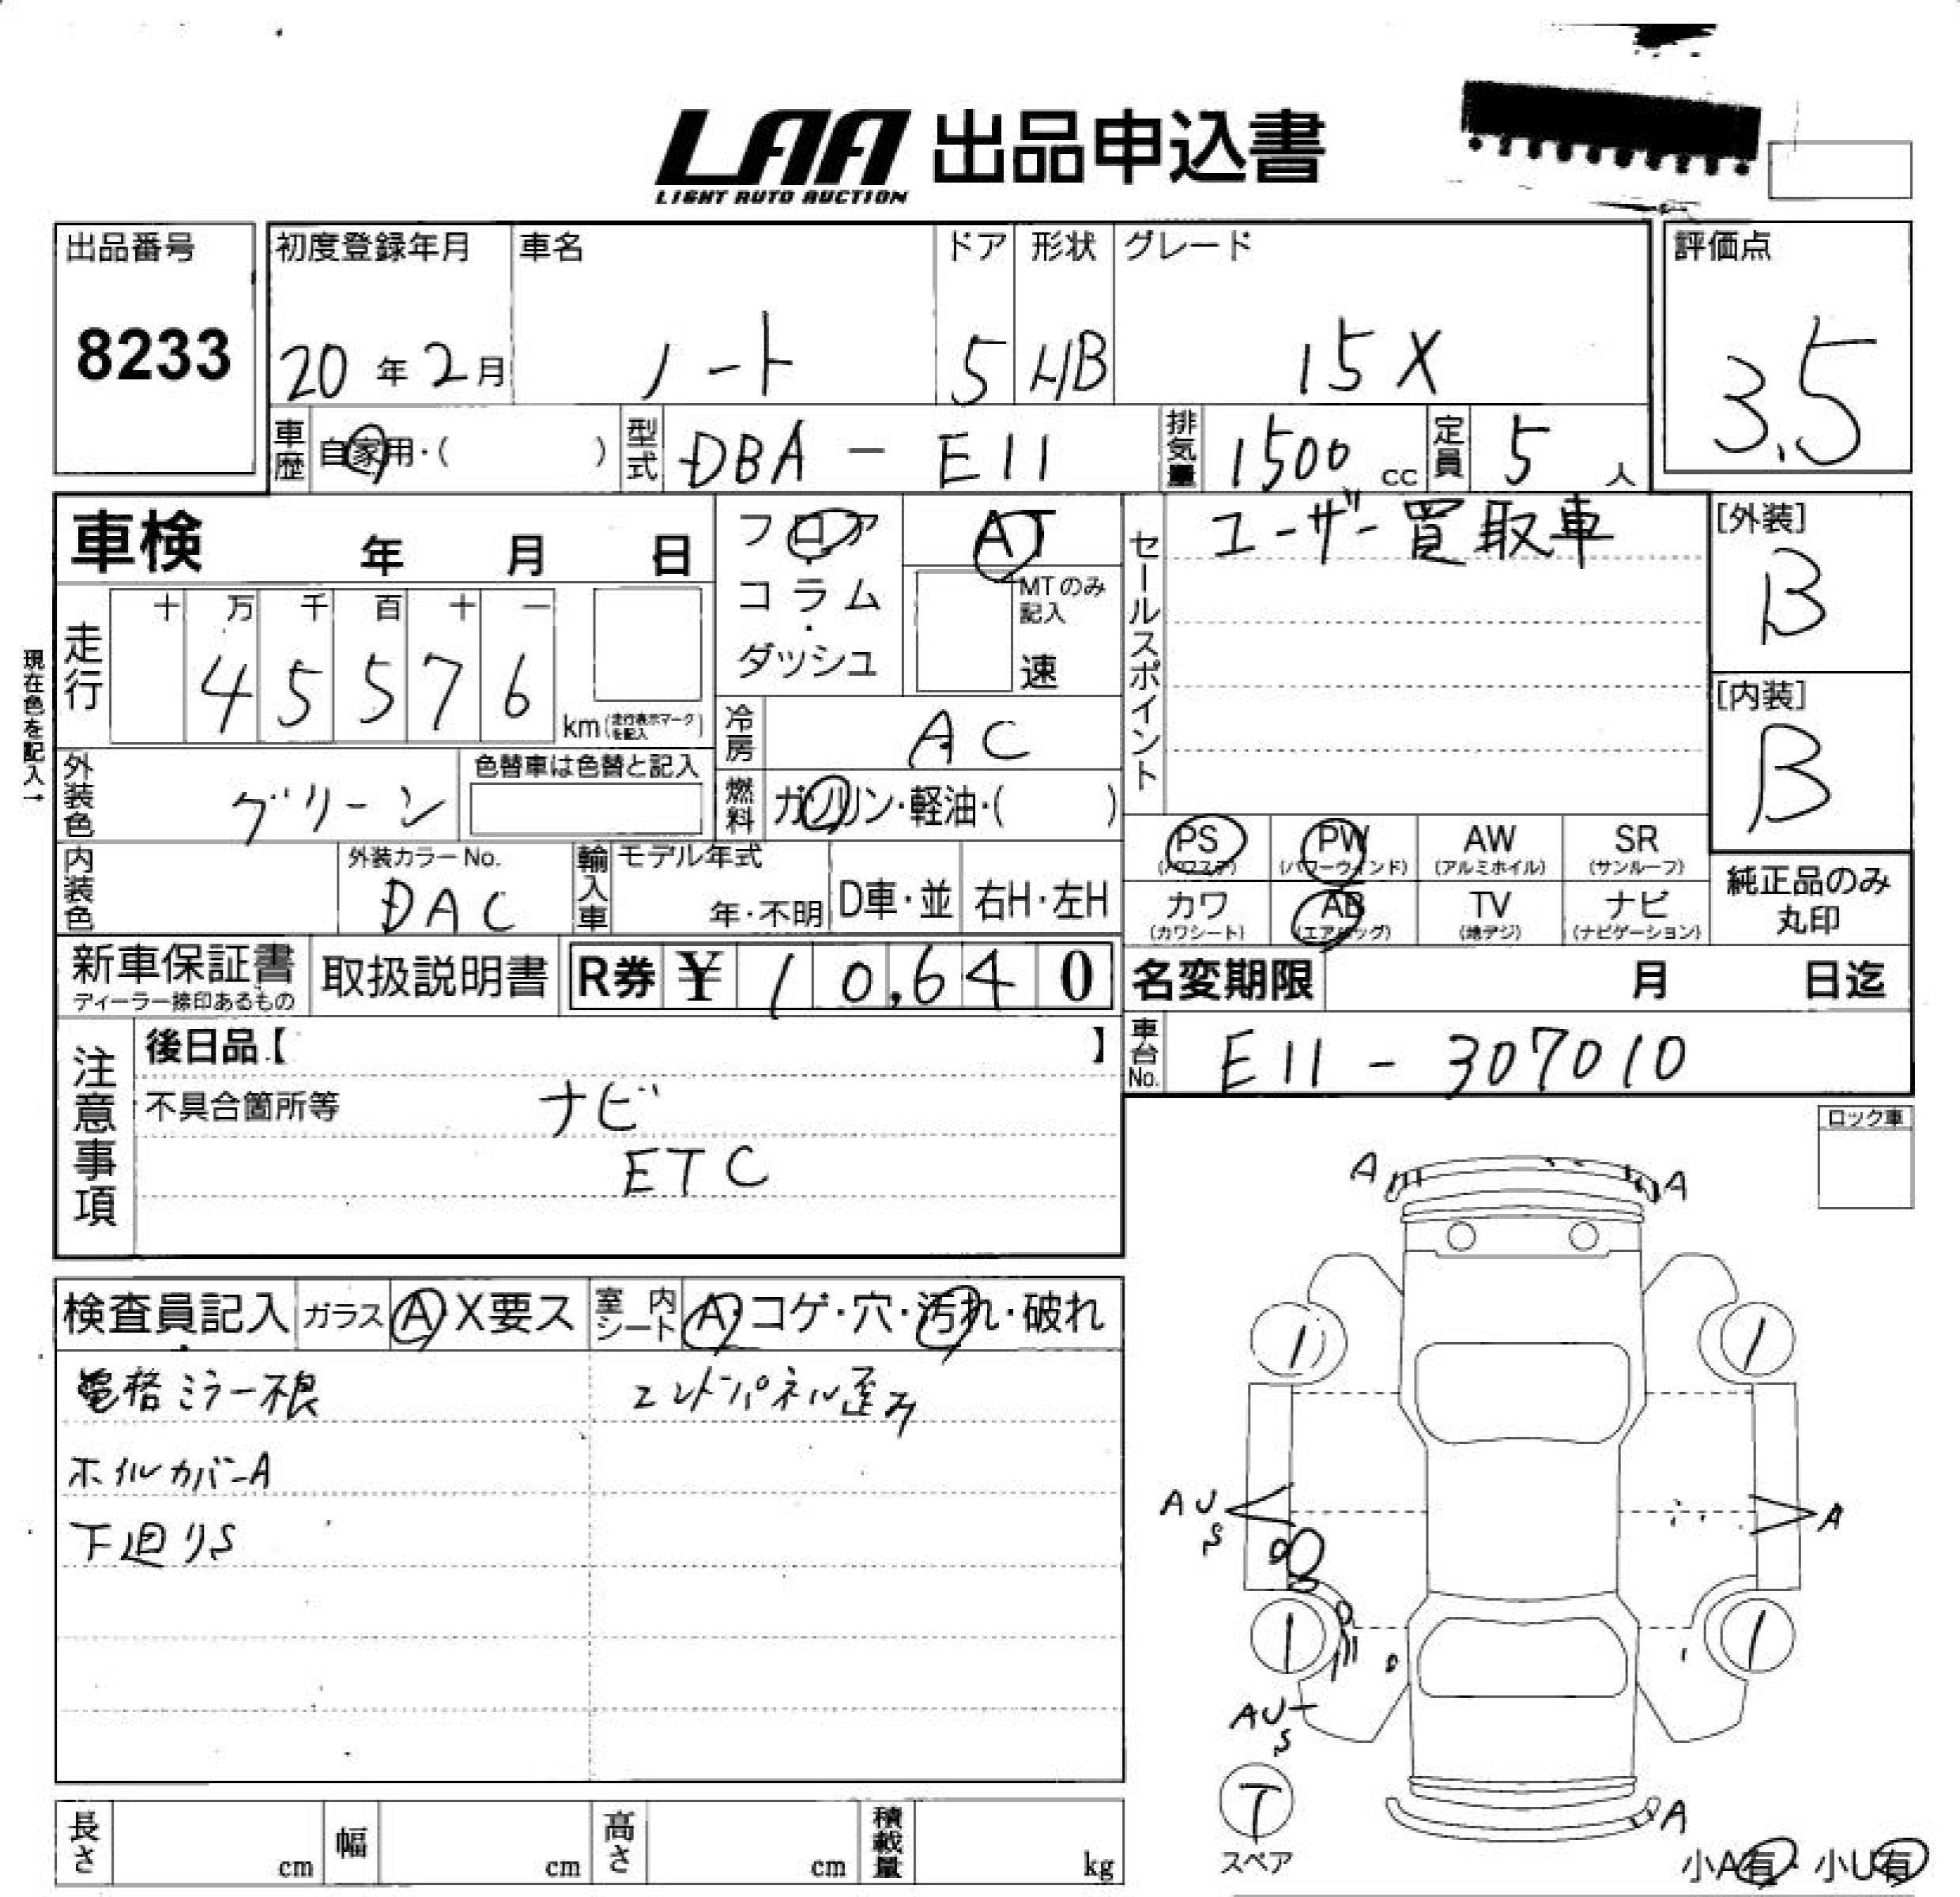 LAA 出品申込書
LIGHT AUTO AUCTION
出品番号
8233
初度登録年月 車名 ドア 形状 グレード
20年2月 ノート 5 HB 15X
評価点
3.5
車歴 自家用・( ) 型式 DBA-E11 排気量 1500cc 定員 5人
車検 年 月 日
フロア
コラム
・
ダッシュ
AT
MTのみ
記入
速
セールスポイント
ユーザー買取車
[外装]
B
[内装]
B
現在色を記入→
走行 十 万 千 百 十 一
4 5 5 7 6
km(走行表示マークを記入)
冷房 AC
外装色 グリーン
色替車は色替と記入
燃料 ガソリン・軽油・( )
PS (パワステ) PW (パワーウィンド) AW (アルミホイル) SR (サンルーフ)
カワ (カワシート) AB (エアバッグ) TV (地デジ) ナビ (ナビゲーション)
純正品のみ
丸印
内装色
外装カラーNo.
DAC
輸入車 モデル年式
年・不明 D車・並 右H・左H
新車保証書
ディーラー捺印あるもの
取扱説明書
R券 ¥ 10,640
名変期限 月 日迄
車台No. E11-307010
注意事項
後日品【 】
不具合箇所等 ナビ
ETC
ロック車
検査員記入 ガラス A X要ス 室内シート A・コゲ・穴・汚れ・破れ
電格ミラー不良
エンドパネル歪み
ホイルカバーA
下廻りS
A A
AU
S
A
AU
S
T
スペア
A
小A有・小U有
長さ cm 幅 cm 高さ cm 積載量 kg